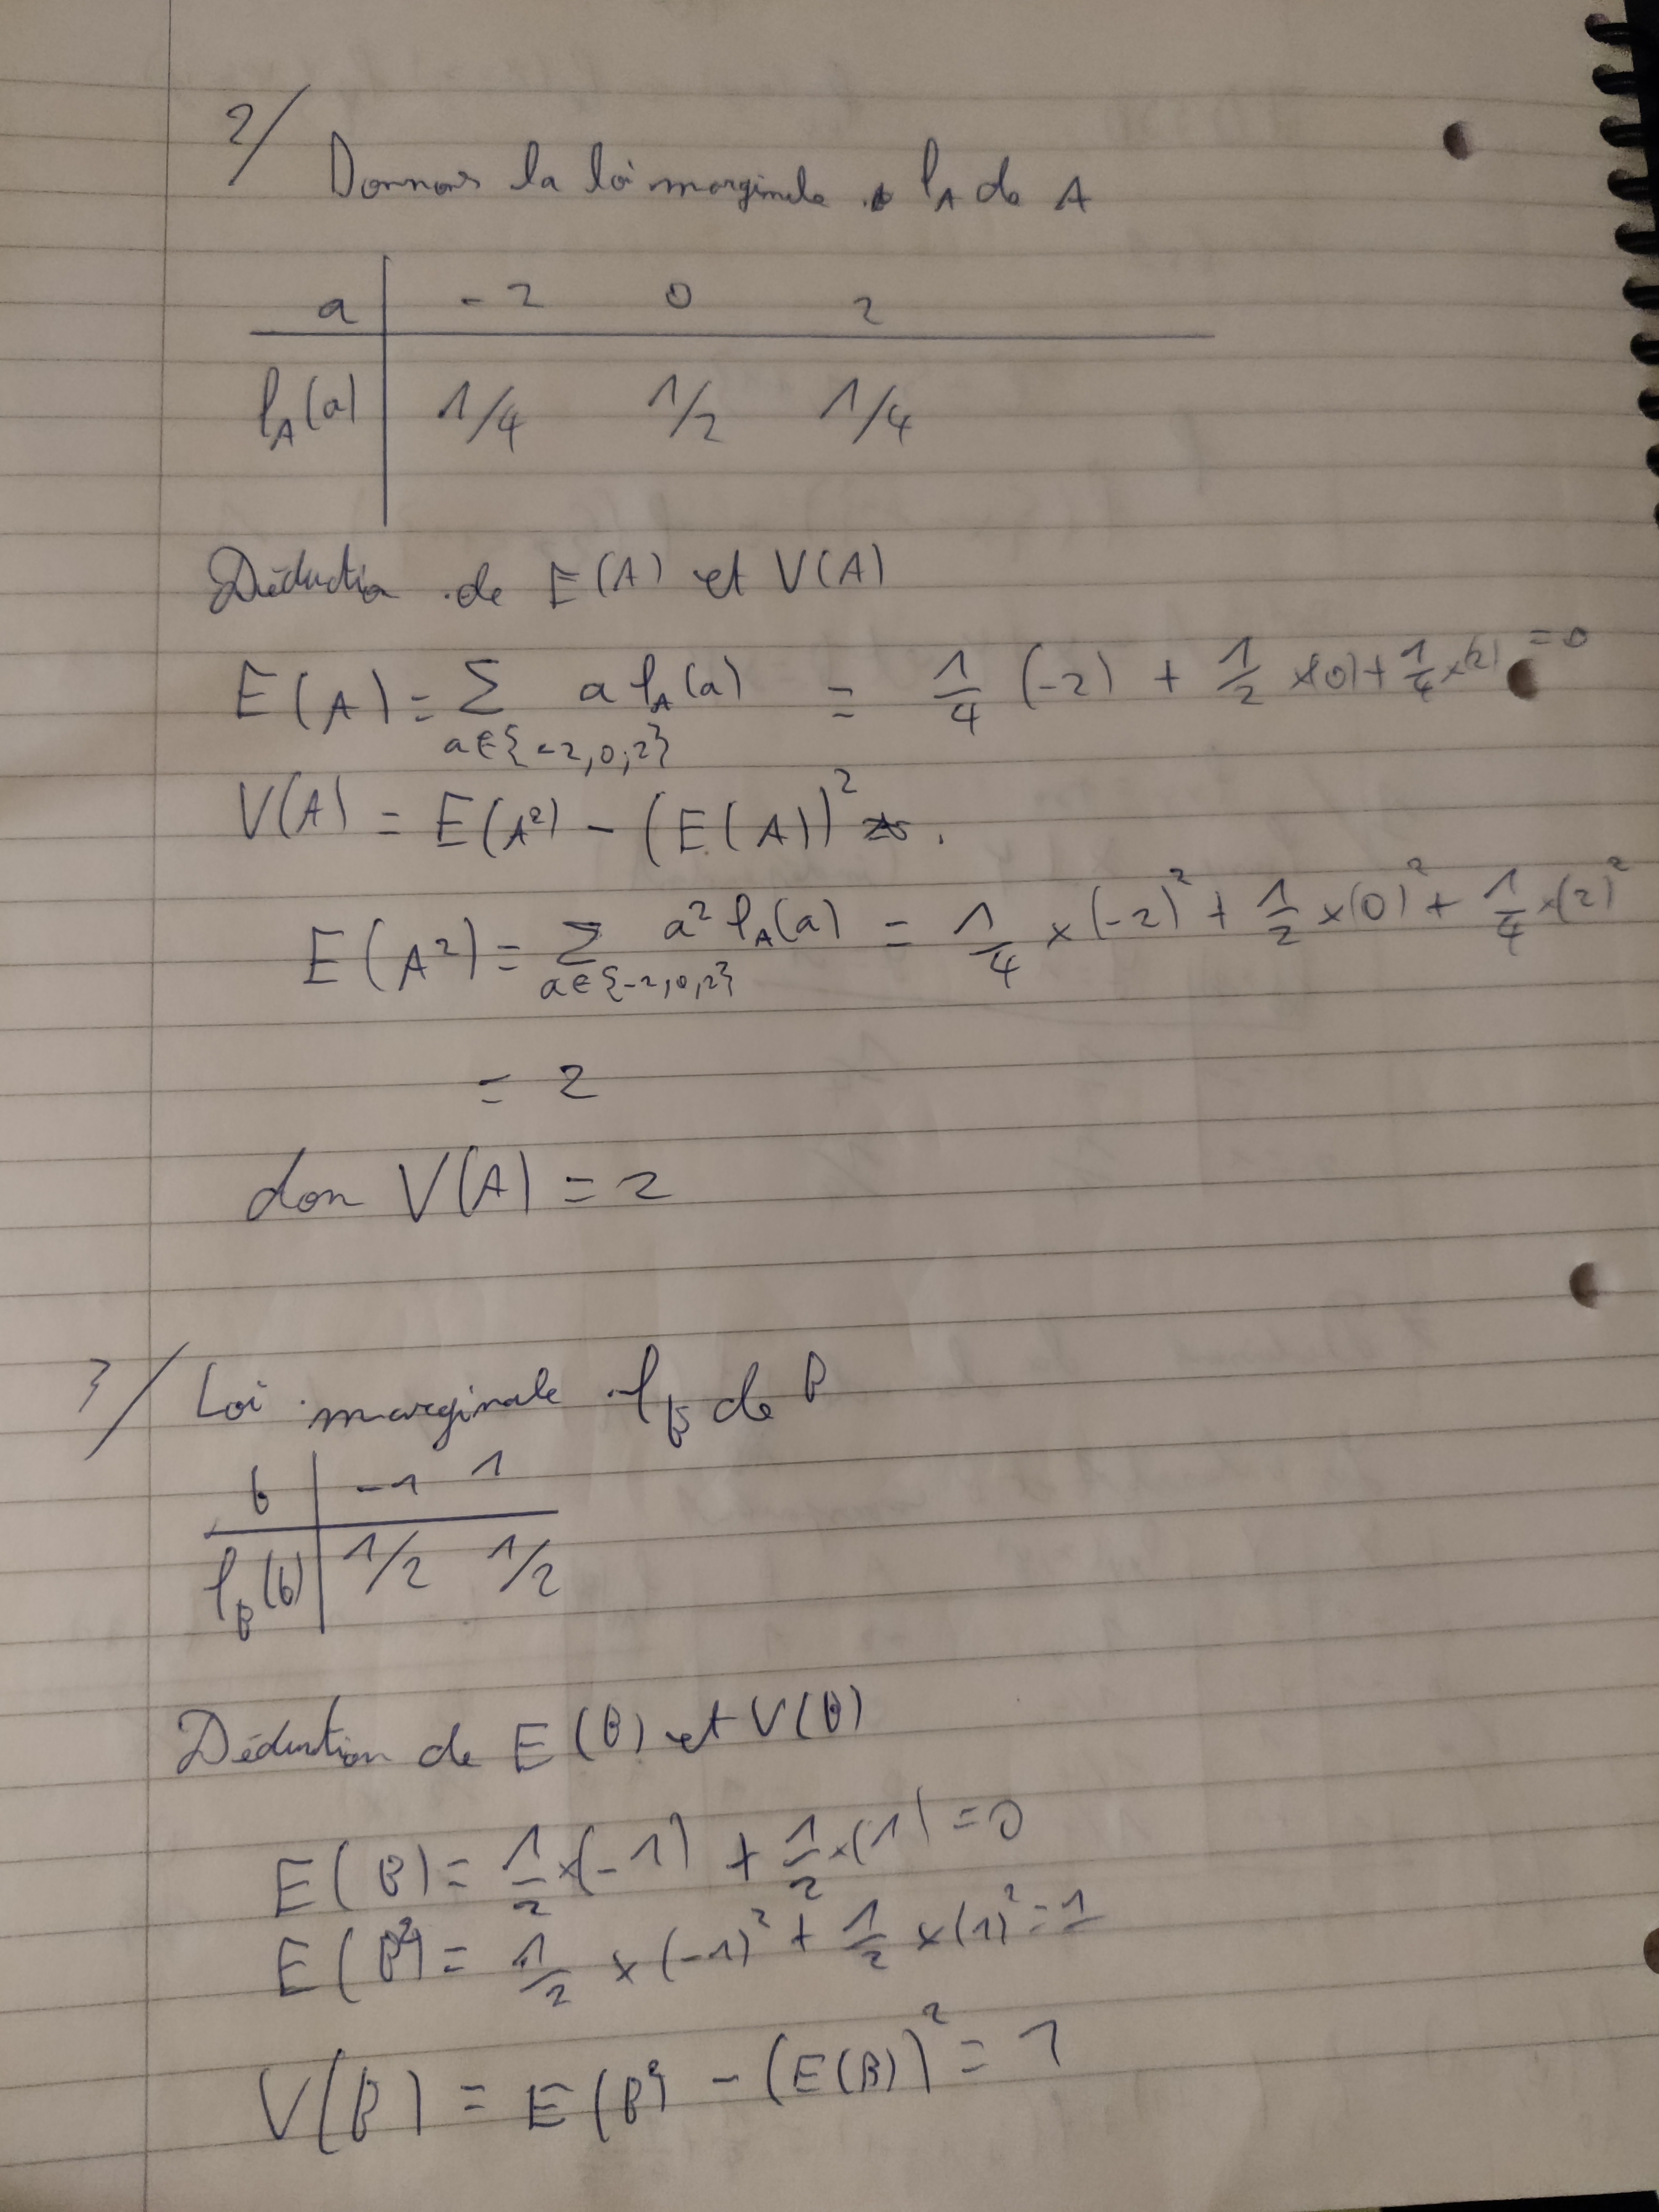 2/ Donnons la loi marginale P_A de A
a | -2 0 2
P_A(a) | 1/4 1/2 1/4
Déduction de E(A) et V(A)
E(A) = Σ_{a∈{-2,0,2}} a P_A(a) = 1/4 (-2) + 1/2 ×(0) + 1/4 ×(2) = 0
V(A) = E(A²) - (E(A))² .
E(A²) = Σ_{a∈{-2,0,2}} a² P_A(a) = 1/4 × (-2)² + 1/2 ×(0)² + 1/4 ×(2)²
= 2
don V(A) = 2
3/ Loi marginale P_B de B
b | -1 1
P_B(b) | 1/2 1/2
Déduction de E(B) et V(B)
E(B) = 1/2 ×(-1) + 1/2 ×(1) = 0
E(B²) = 1/2 × (-1)² + 1/2 × (1)² = 1
V(B) = E(B²) - (E(B))² = 1